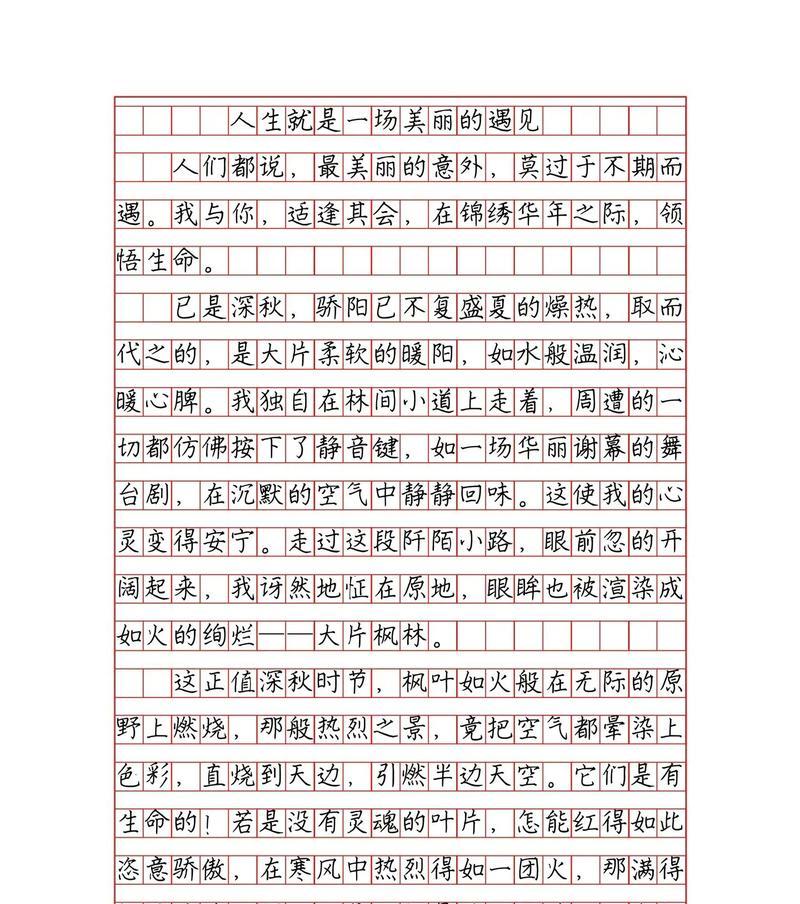 人生就是一场美丽的遇见
人们都说，最美丽的意外，莫过于不期而
遇。我与你，适逢其会，在锦绣华年之际，领
悟生命。
已是深秋，骄阳已不复盛夏的燥热，取而
代之的，是大片柔软的暖阳，如水般温润，沁
暖心脾。我独自在林间小道上走着，周遭的一
切都仿佛按下了静音键，如一场华丽谢幕的舞
台剧，在沉默的空气中静静回味。这使我的心
灵变得安宁。走过这段阡陌小路，眼前忽的开
阔起来，我讶然地怔在原地，眼眸也被渲染成
如火的绚烂——大片枫林。
这正值深秋时节，枫叶如火般在无际的原
野上燃烧，那般热烈之景，竟把空气都晕染上
色彩，直烧到天边，引燃半边天空。它们是有
生命的！若是没有灵魂的叶片，怎能红得如此
恣意骄傲，在寒风中热烈得如一团火，那满得